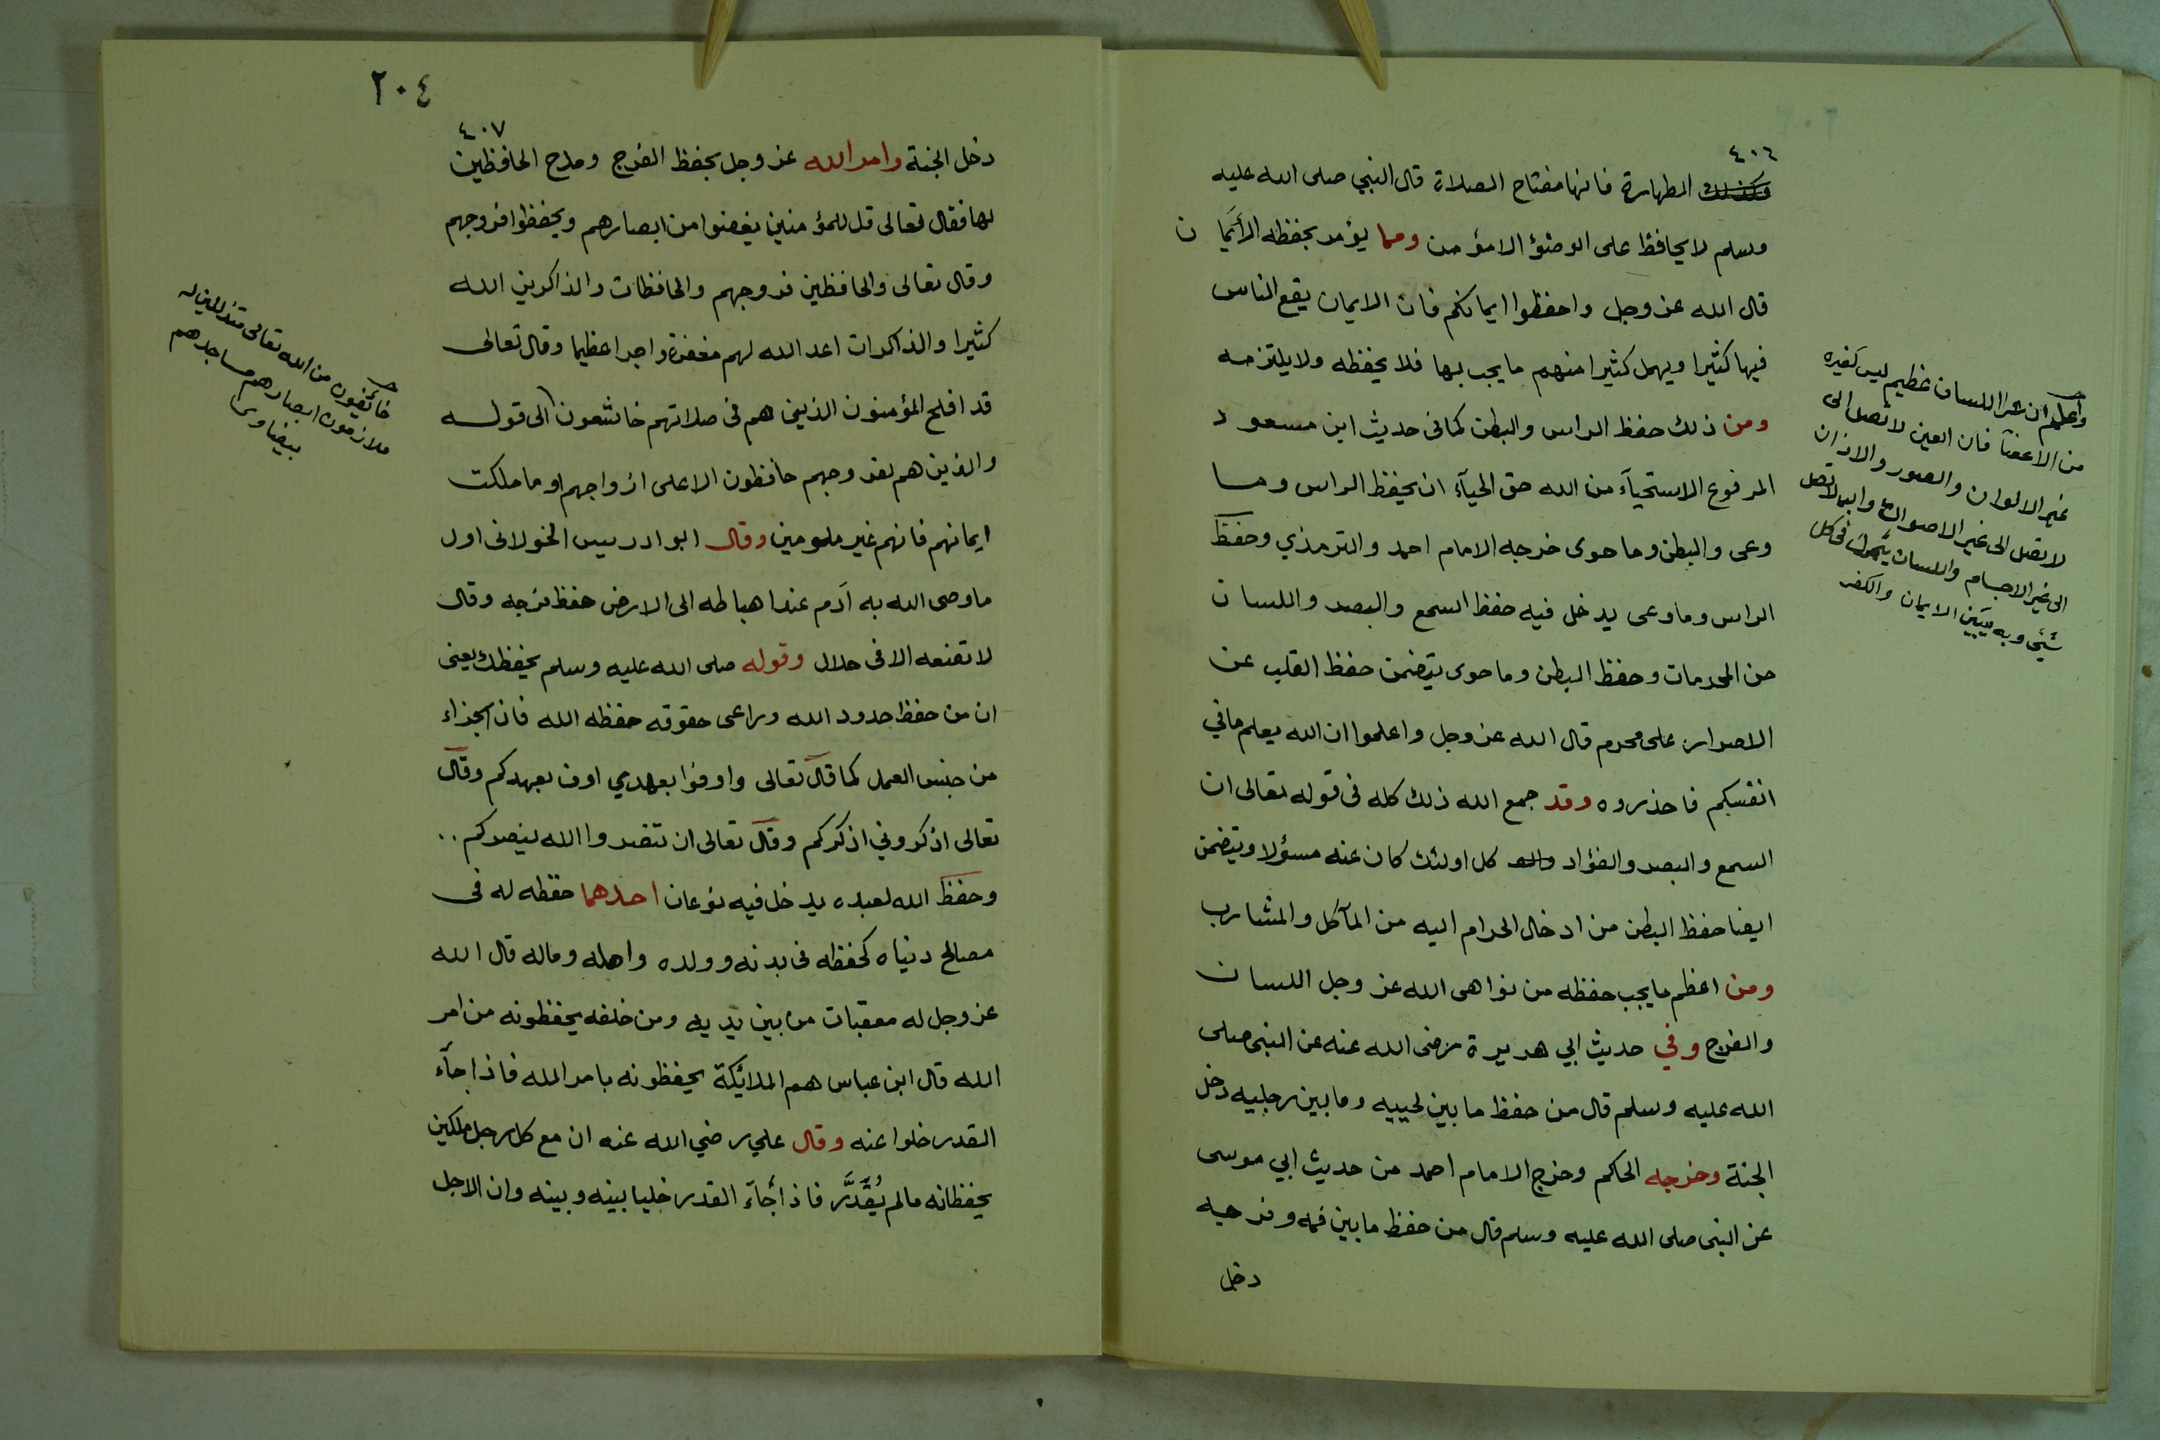 ٤٠٦
وكذلك الطهارة فانها مفتاح الصلاة قال النبي صلى الله عليه
وسلم لا يحافظ على الوضؤ الا مؤمن ومما يؤمر بحفظه الأَيَما ن
قال الله عز وجل واحفظوا ايمانكم فان الايمان يقع الناس
فيها كثيرا ويهمل كثيرا منهم ما يجب بها فلا يحفظه ولا يلتزمه
ومن ذلك حفظ الراس والبطن كما فى حديث ابن مسعود
المرفوع الاستحيآء من الله حق الحيآء ان يحفظ الراس وما
وعى والبطن وما حوى خرجه الامام احمد والترمذي وحفظ
الراس وما وعى يدخل فيه حفظ السمع والبصر واللسان
من المحرمات وحفظ البطن وما حوى يتضمن حفظ القلب عن
الاصرار على محرم قال الله عز وجل واعلموا ان الله يعلم ما في
انفسكم فاحذروه وقد جمع الله ذلك كله فى قوله تعالى ان
السمع والبصر والفؤاد كل اولئك كان عنه مسؤلا ويتضمن
ايضا حفظ البطن من ادخال الحرام اليه من المآكل والمشارب
ومن اعظم ما يجب حفظه من نواهى الله عز وجل اللسان
والفرج وفي حديث ابي هريرة رضى الله عنه عن النبى صلى
الله عليه وسلم قال من حفظ ما بين لحييه وما بين رجليه دخل
الجنة وخرجه الحاكم وخرج الامام احمد من حديث ابي موسى
عن النبى صلى الله عليه وسلم قال من حفظ ما بين فمه وفرجيه
دخل
واعلم ان شر اللسان عظيم ليس كغيره
من الاعضآ فان العين لا تصل الى
غير الالوان والصور والاذان
لا تصل الى غير الاصوات واليد لا تصل
الى غير الاجسام واللسان يتحرك فى كل
شئي وبه يتبين الايمان والكفر
٢٠٤
٤٠٧
دخل الجنة وامر الله عز وجل بحفظ الفرج ومدح الحافظين
لها فقال تعالى قل للمؤمنين يغضوا من ابصارهم ويحفظوا فروجهم
وقال تعالى والحافظين فروجهم والحافظات والذاكرين الله
كثيرا والذاكرات اعد الله لهم مغفرة واجرا عظيما وقال تعالى
قد افلح المؤمنون الذين هم فى صلاتهم خاشعون الى قوله
والذين هم لفروجهم حافظون الا على ازواجهم او ما ملكت
ايمانهم فانهم غير ملومين وقال ابو ادريس الخولانى اول
ما وصى الله به آدم عند اهباطه الى الارض حفظ فرجه وقال
لا تضعه الا فى حلال وقوله صلى الله عليه وسلم يحفظك يعنى
ان من حفظ حدود الله وراعى حقوقه حفظه الله فان الجزاء
من جنس العمل كما قال تعالى واوفوا بعهدي اوف بعهدكم وقال
تعالى اذكروني اذكركم وقال تعالى ان تنصروا الله ينصركم ..
وحفظ الله لعبده يدخل فيه نوعان احدهما حفظه له فى
مصالح دنياه كحفظه فى بدنه وولده واهله وماله قال الله
عز وجل له معقبات من بين يديه ومن خلفه يحفظونه من امر
الله قال ابن عباس هم الملائيكة يحفظونه بامر الله فاذا جآء
القدر خلوا عنه وقال علي رضي الله عنه ان مع كل رجل ملكين
يحفظانه مالم يُقَدَّر فاذا جآء القدر خليا بينه وبينه وان الاجل
خائفون من الله تعالى متذللين له
ملازمون ابصارهم مساجدهم
بيضاوى